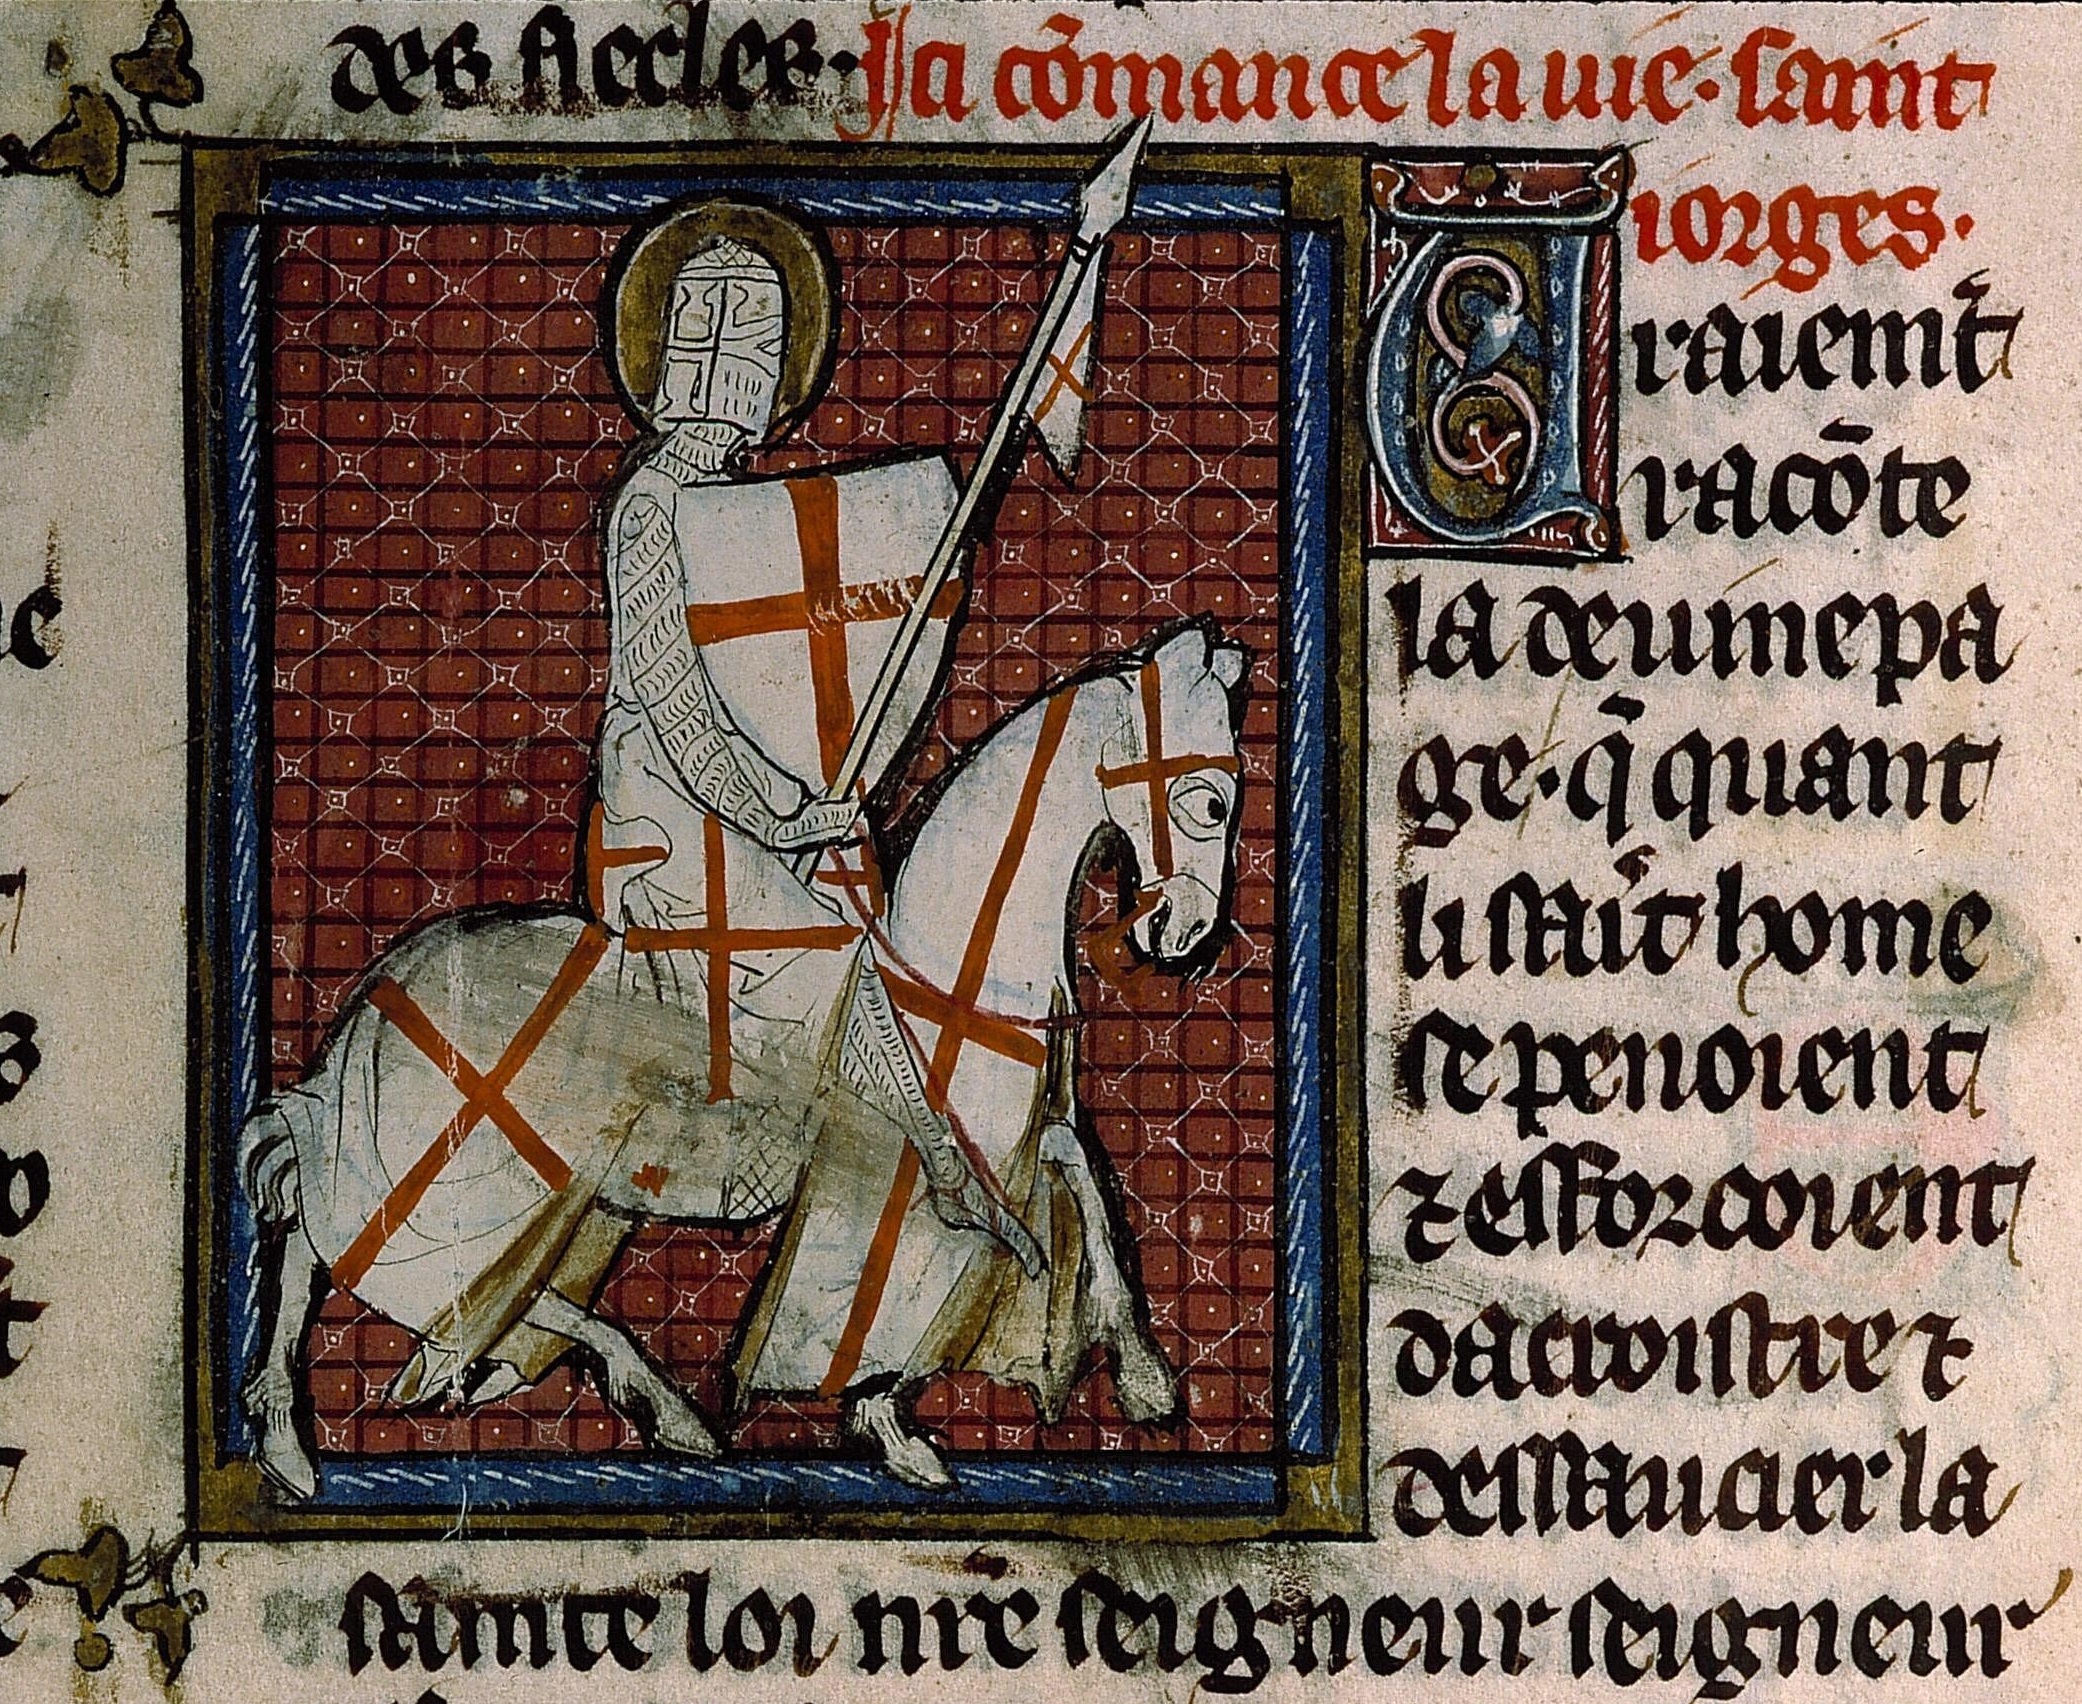 des siecles. Ici cōmance la uie. saint
iorges.
Uraiemt̄
racōte
la deuine pa
ge. q̄ quant
li sait̄ home
se penoient
⁊ efforcoient
dacroistre ⁊
dessaucier la
sainte loi nr̄e seigneur seigneur